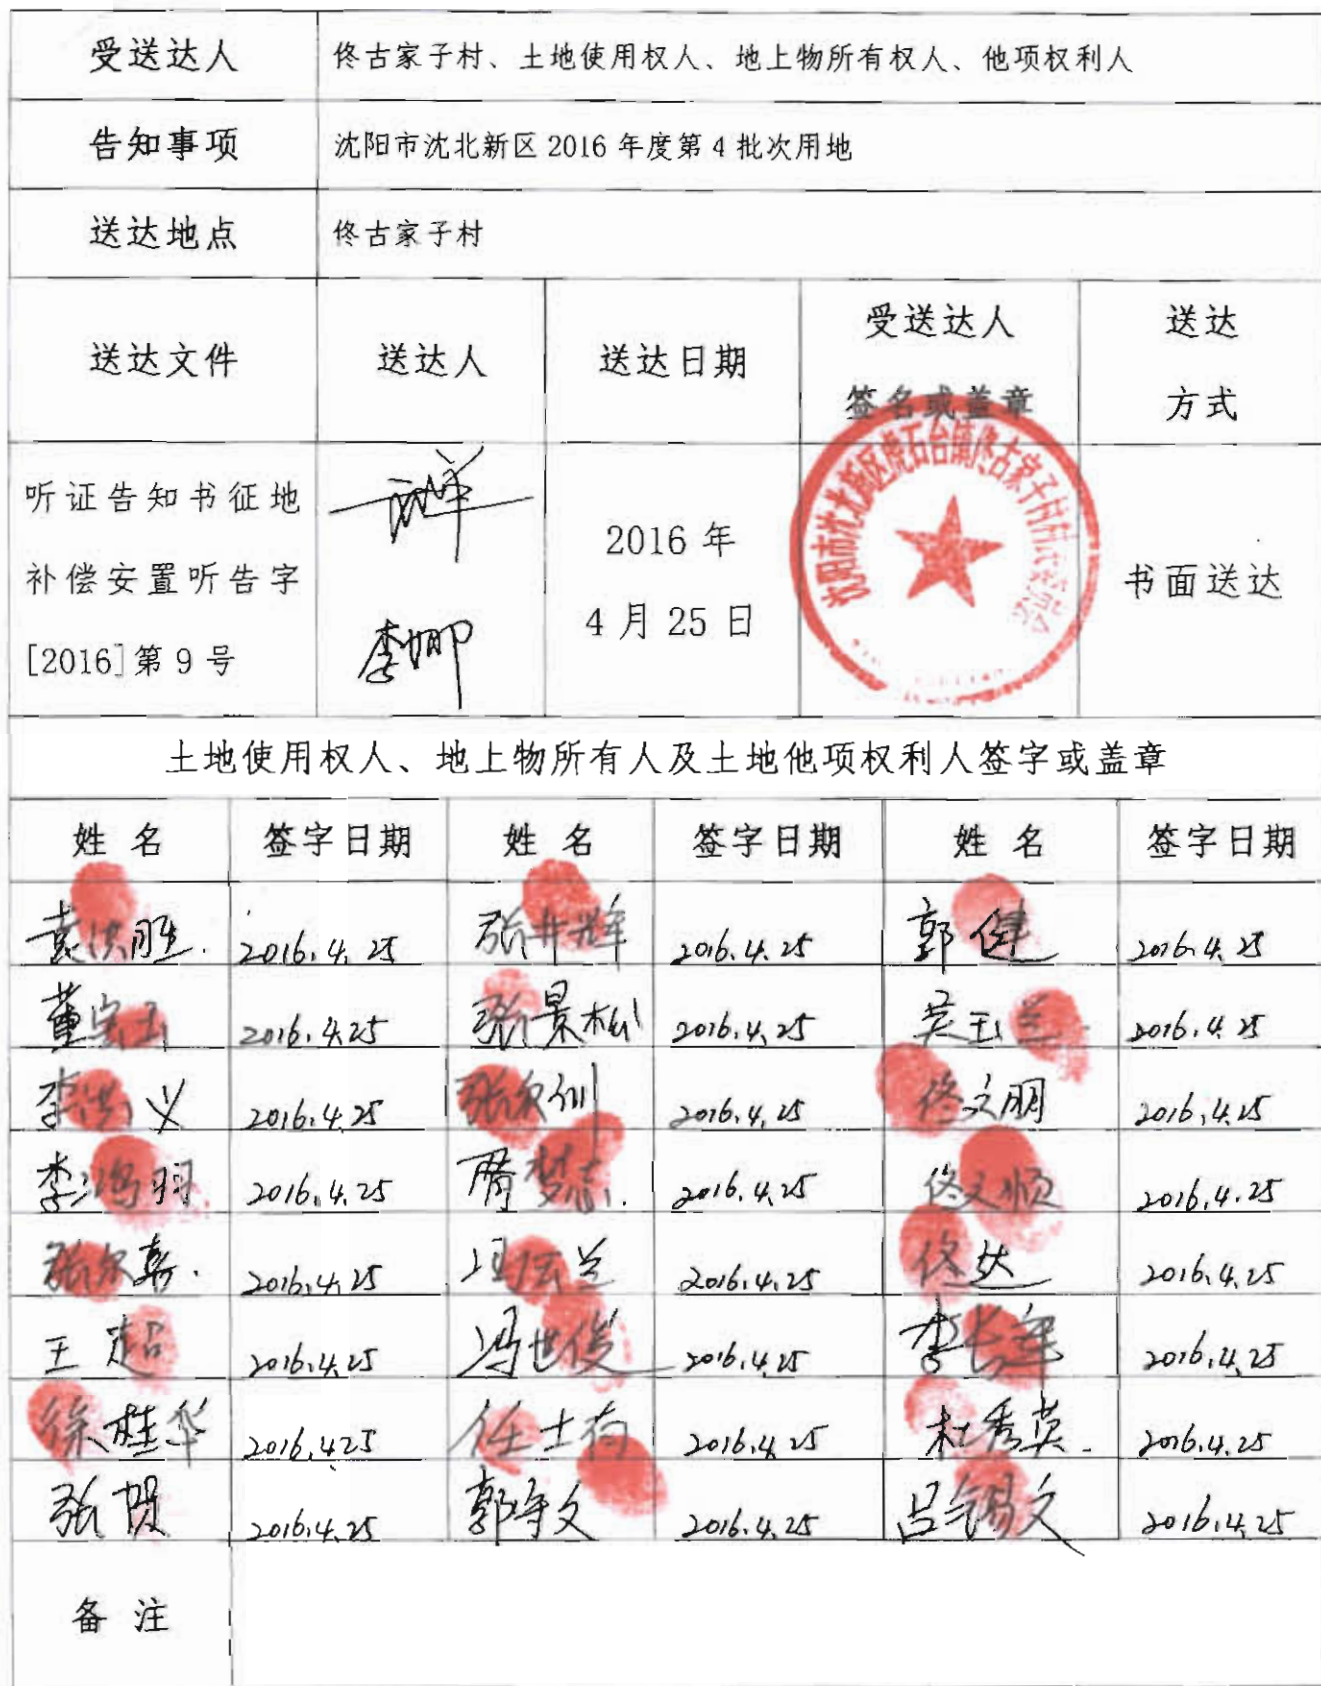 受送达人 佟古家子村、土地使用权人、地上物所有权人、他项权利人
告知事项 沈阳市沈北新区2016年度第4批次用地
送达地点 佟古家子村
送达文件 送达人 送达日期 受送达人签名或盖章 送达方式
听证告知书征地
补偿安置听告字
[2016]第9号
李娜
2016年
4月25日
沈阳市沈北新区虎石台镇佟古家子村村民委员会
书面送达
土地使用权人、地上物所有人及土地他项权利人签字或盖章
姓名 签字日期 姓名 签字日期 姓名 签字日期
袁洪胜. 2016.4.25 张井辉 2016.4.25 郭健 2016.4.25
董宝玉 2016.4.25 张景松 2016.4.25 吴玉兰 2016.4.25
李洪义 2016.4.25 张尔训 2016.4.25 佟文明 2016.4.25
李鸿羽 2016.4.25 2016.4.25 佟文顺 2016.4.25
张尔嘉. 2016.4.25 2016.4.25 佟达 2016.4.25
王超 2016.4.25 冯世俊 2016.4.25 李长军 2016.4.25
徐桂华 2016.4.25 任士荷 2016.4.25 杜秀英. 2016.4.25
张贺 2016.4.25 郭守文 2016.4.25 吕锡文 2016.4.25
备注